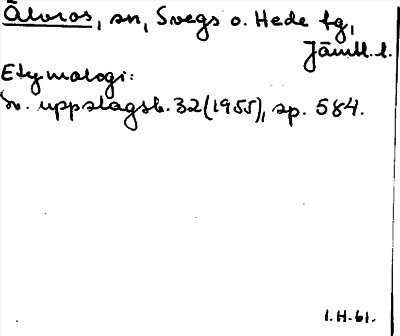 Älvros, sn, Svegs o. Hede tg,
Jämtl. l.
Etymologi:
Sv. uppslagsb. 32 (1955), sp. 584.
1. H. 61.